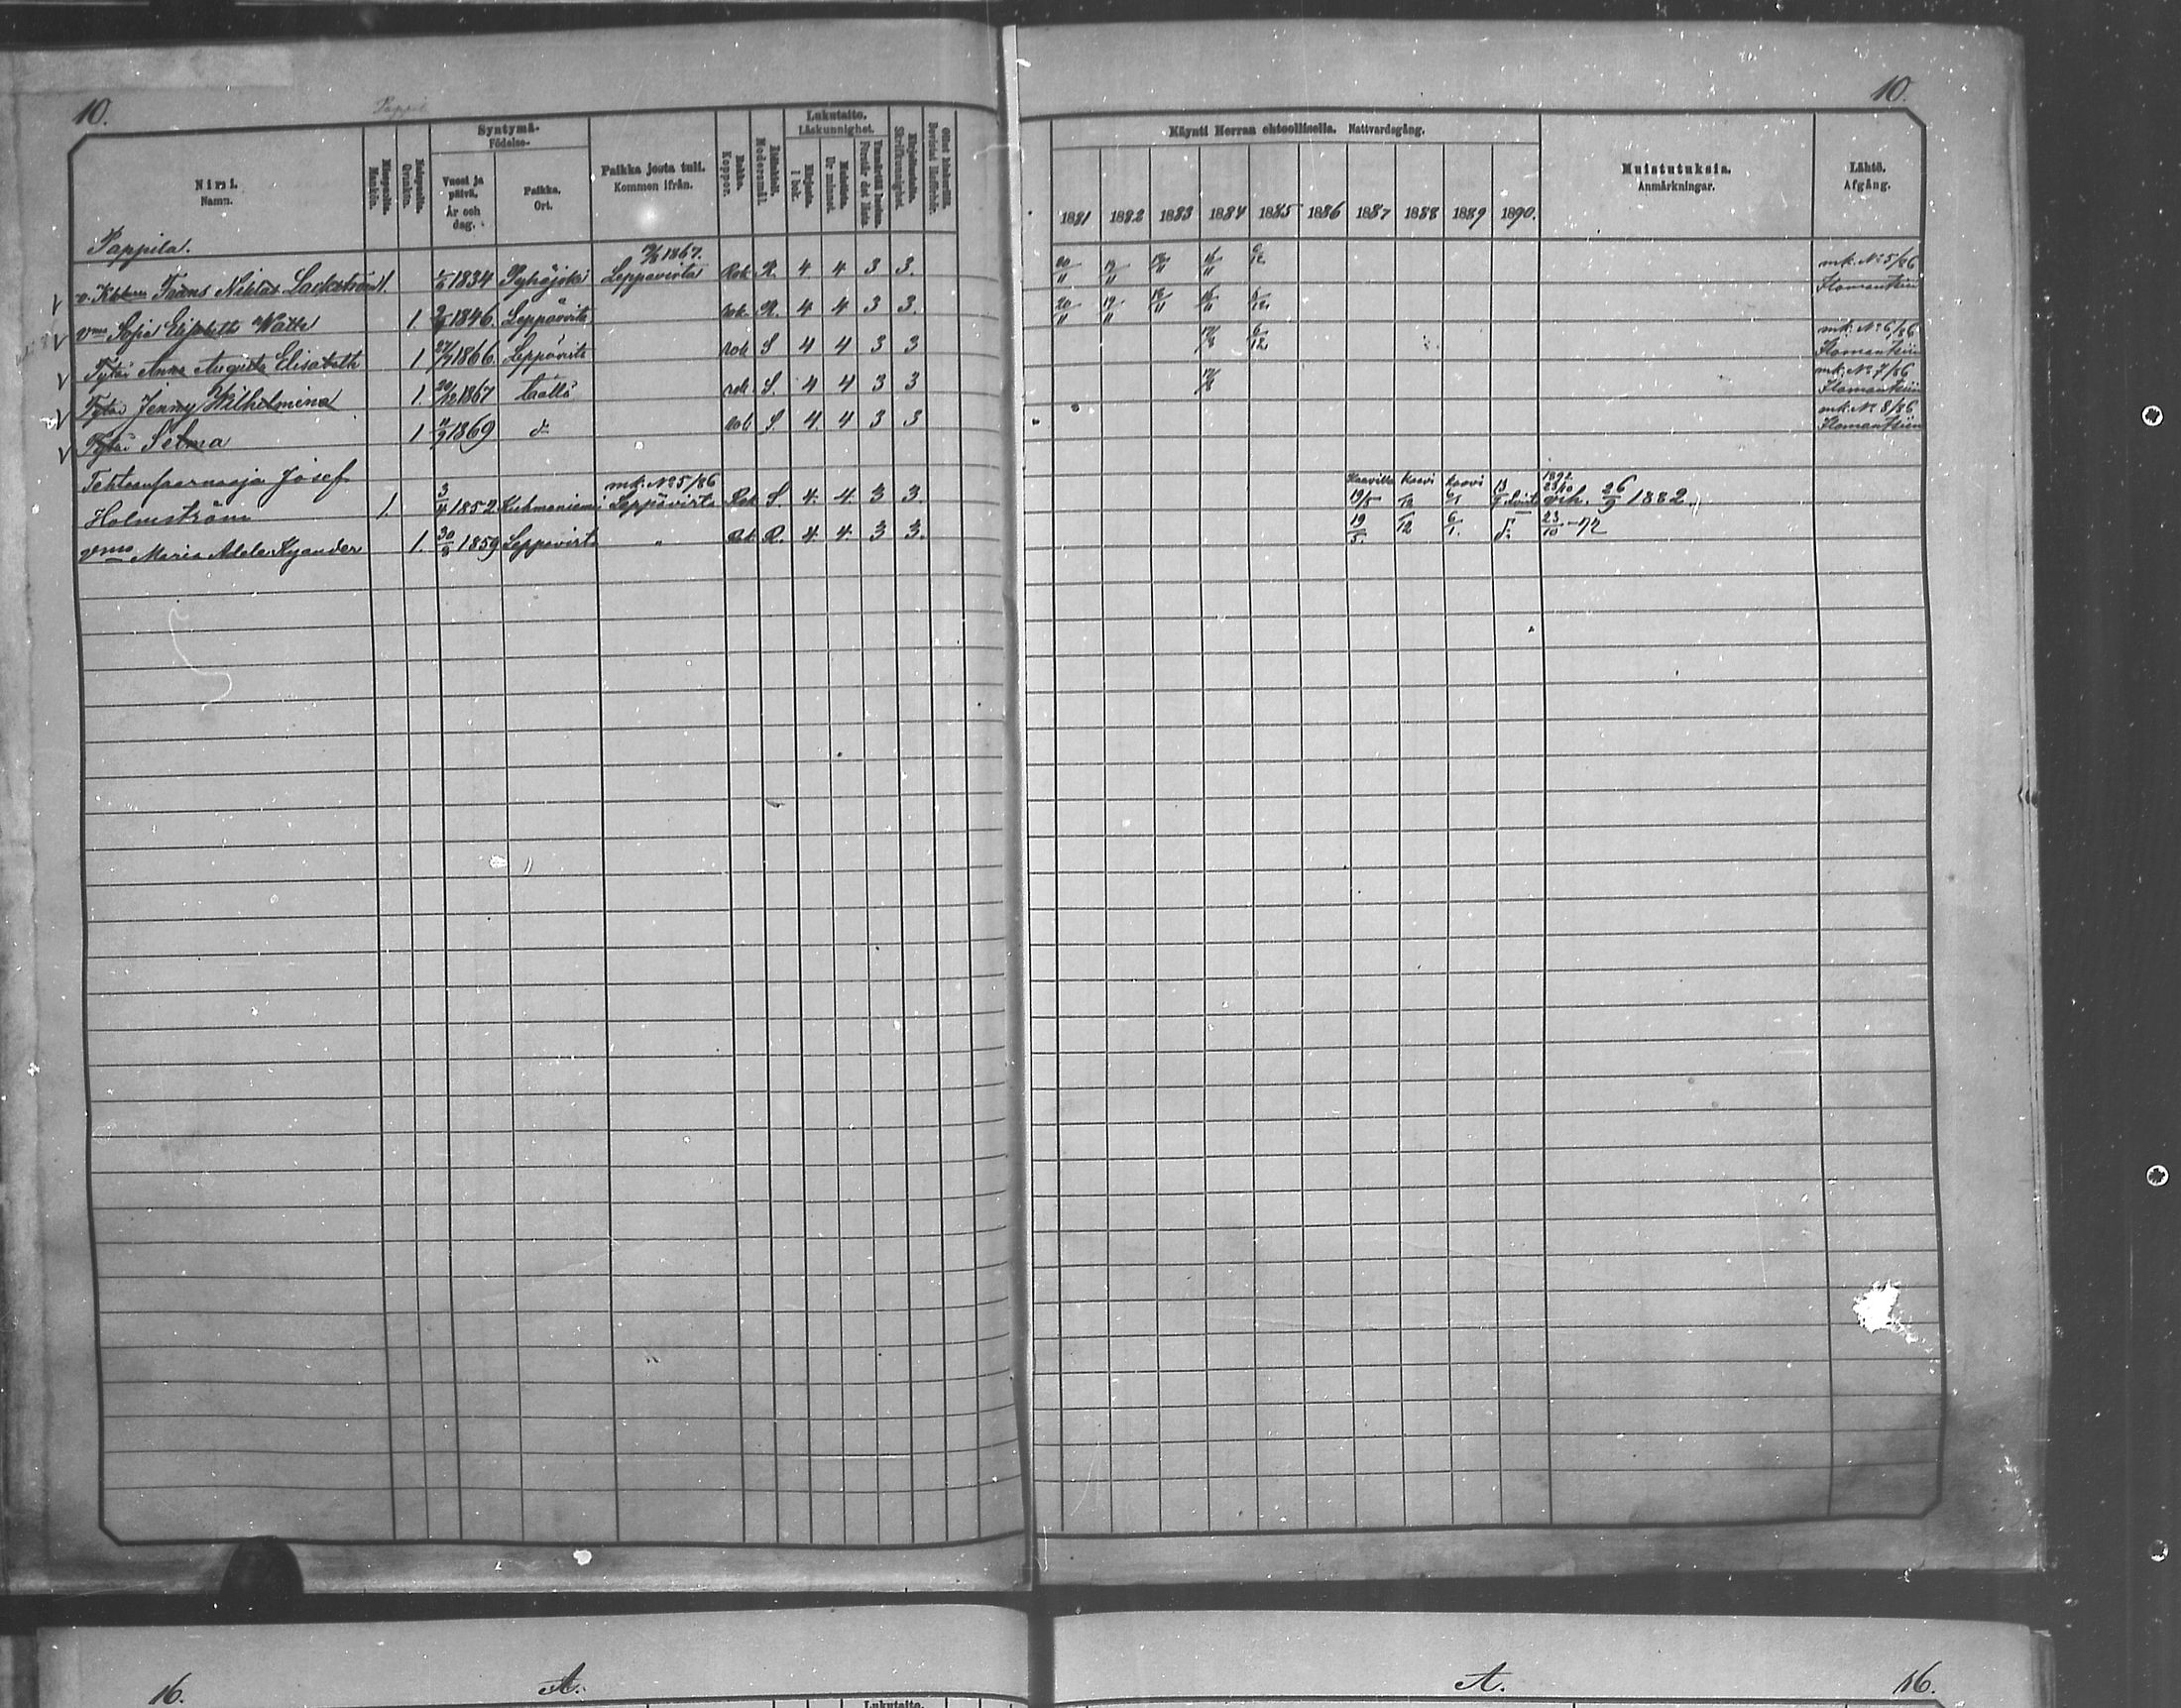 10.
Pappila
Nimi.
Namn.
Miespuolia.
Mankön.
Naispuolia.
Qvinkön.
Syntymä-
Födelse-
Vuosi ja päivä.
År och dag.
Paikka.
Ort.
Paikka josta tuli.
Kommen ifrån.
Rokko.
Koppor.
Äidinkieli.
Modersmål.
Lukutaito.
Läskunnighet.
Kirjasta.
I bok.
Muistista.
Ur minnet.
Ymmärtää lukem.
Förstår det lästa.
Kirjoitustaito.
Skrifkunnighet.
Pappila.
v. Frans Niklas Lackström 1. 1834 Pyhäjoki 1867. Leppävirta Rok. R. 4 4 3 3.
vmo Sofia Elisabeth Watts 1. 1846. Leppävirta rok. R. 4 4 3 3.
Tytär Anna Augusta Elisabeth 1 27/7 1866. Leppävirta rok S 4 4 3 3
Tytär Jenny Wilhelmina 1. 20/12 1867 täällä rok. S. 4 4 3 3
Tytär Selma 1 1869 d:o rok S. 4 4 3 3
Tehtaanhaarnaaja Josef mk. No 5/86
Holmström 1. 3/4 1852 Kuhmoniemi Leppävirta Rok S. 4. 4. 3 3.
vmo Maria Adele Kyander 1. 30/8 1859 Leppävirta " Rok R. 4. 4. 3 3.
10.
Käynti Herran ehtoollisella. Nattvardsgång.
1881 1882 1883 1884 1885 1886 1887 1888 1889 1890.
Muistutuksia.
Anmärkningar.
Lähtö.
Afgång.
20/11 19/11 18/11 16/11 6/12 mk. No 5/86
Ilomantsiin
20/11 19/11 18/11 16/11 6/12
6/12 mk. No 6/86
Ilomantsiin
mk. No 7/86
Ilomantsiin
mk. No 8/86
Ilomantsiin
Kaavilla kaavi kaavi 1892 23/10
19/5 1/12 6/1 vih. 26/9 1882.
19/5. 1/12 6/1. 23/10 -92
16. A.
Lukutaito.
A. 16.